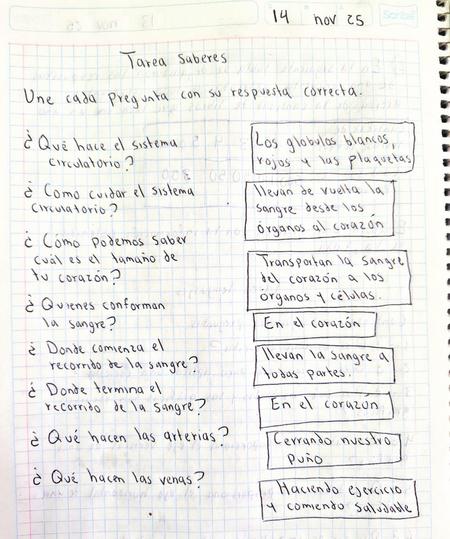 14 nov 25
Scribe
Tarea Saberes
Une cada pregunta con su respuesta correcta.
¿Qué hace el sistema
circulatorio?
¿Como cuidar el sistema
circulatorio?
¿Cómo podemos saber
cuál es el tamaño de
tu corazón?
¿Quienes conforman
la sangre?
¿Donde comienza el
recorrido de la sangre?
¿Donde termina el
recorrido de la sangre?
¿Qué hacen las arterias?
¿Qué hacen las venas?
Los globulos blancos,
rojos y las plaquetas
llevan de vuelta la
sangre desde los
órganos al corazón
Transportan la sangre
del corazón a los
órganos y células.
En el corazón
llevan la sangre a
todas partes.
En el corazón
Cerrando nuestro
puño
Haciendo ejercicio
y comiendo saludable